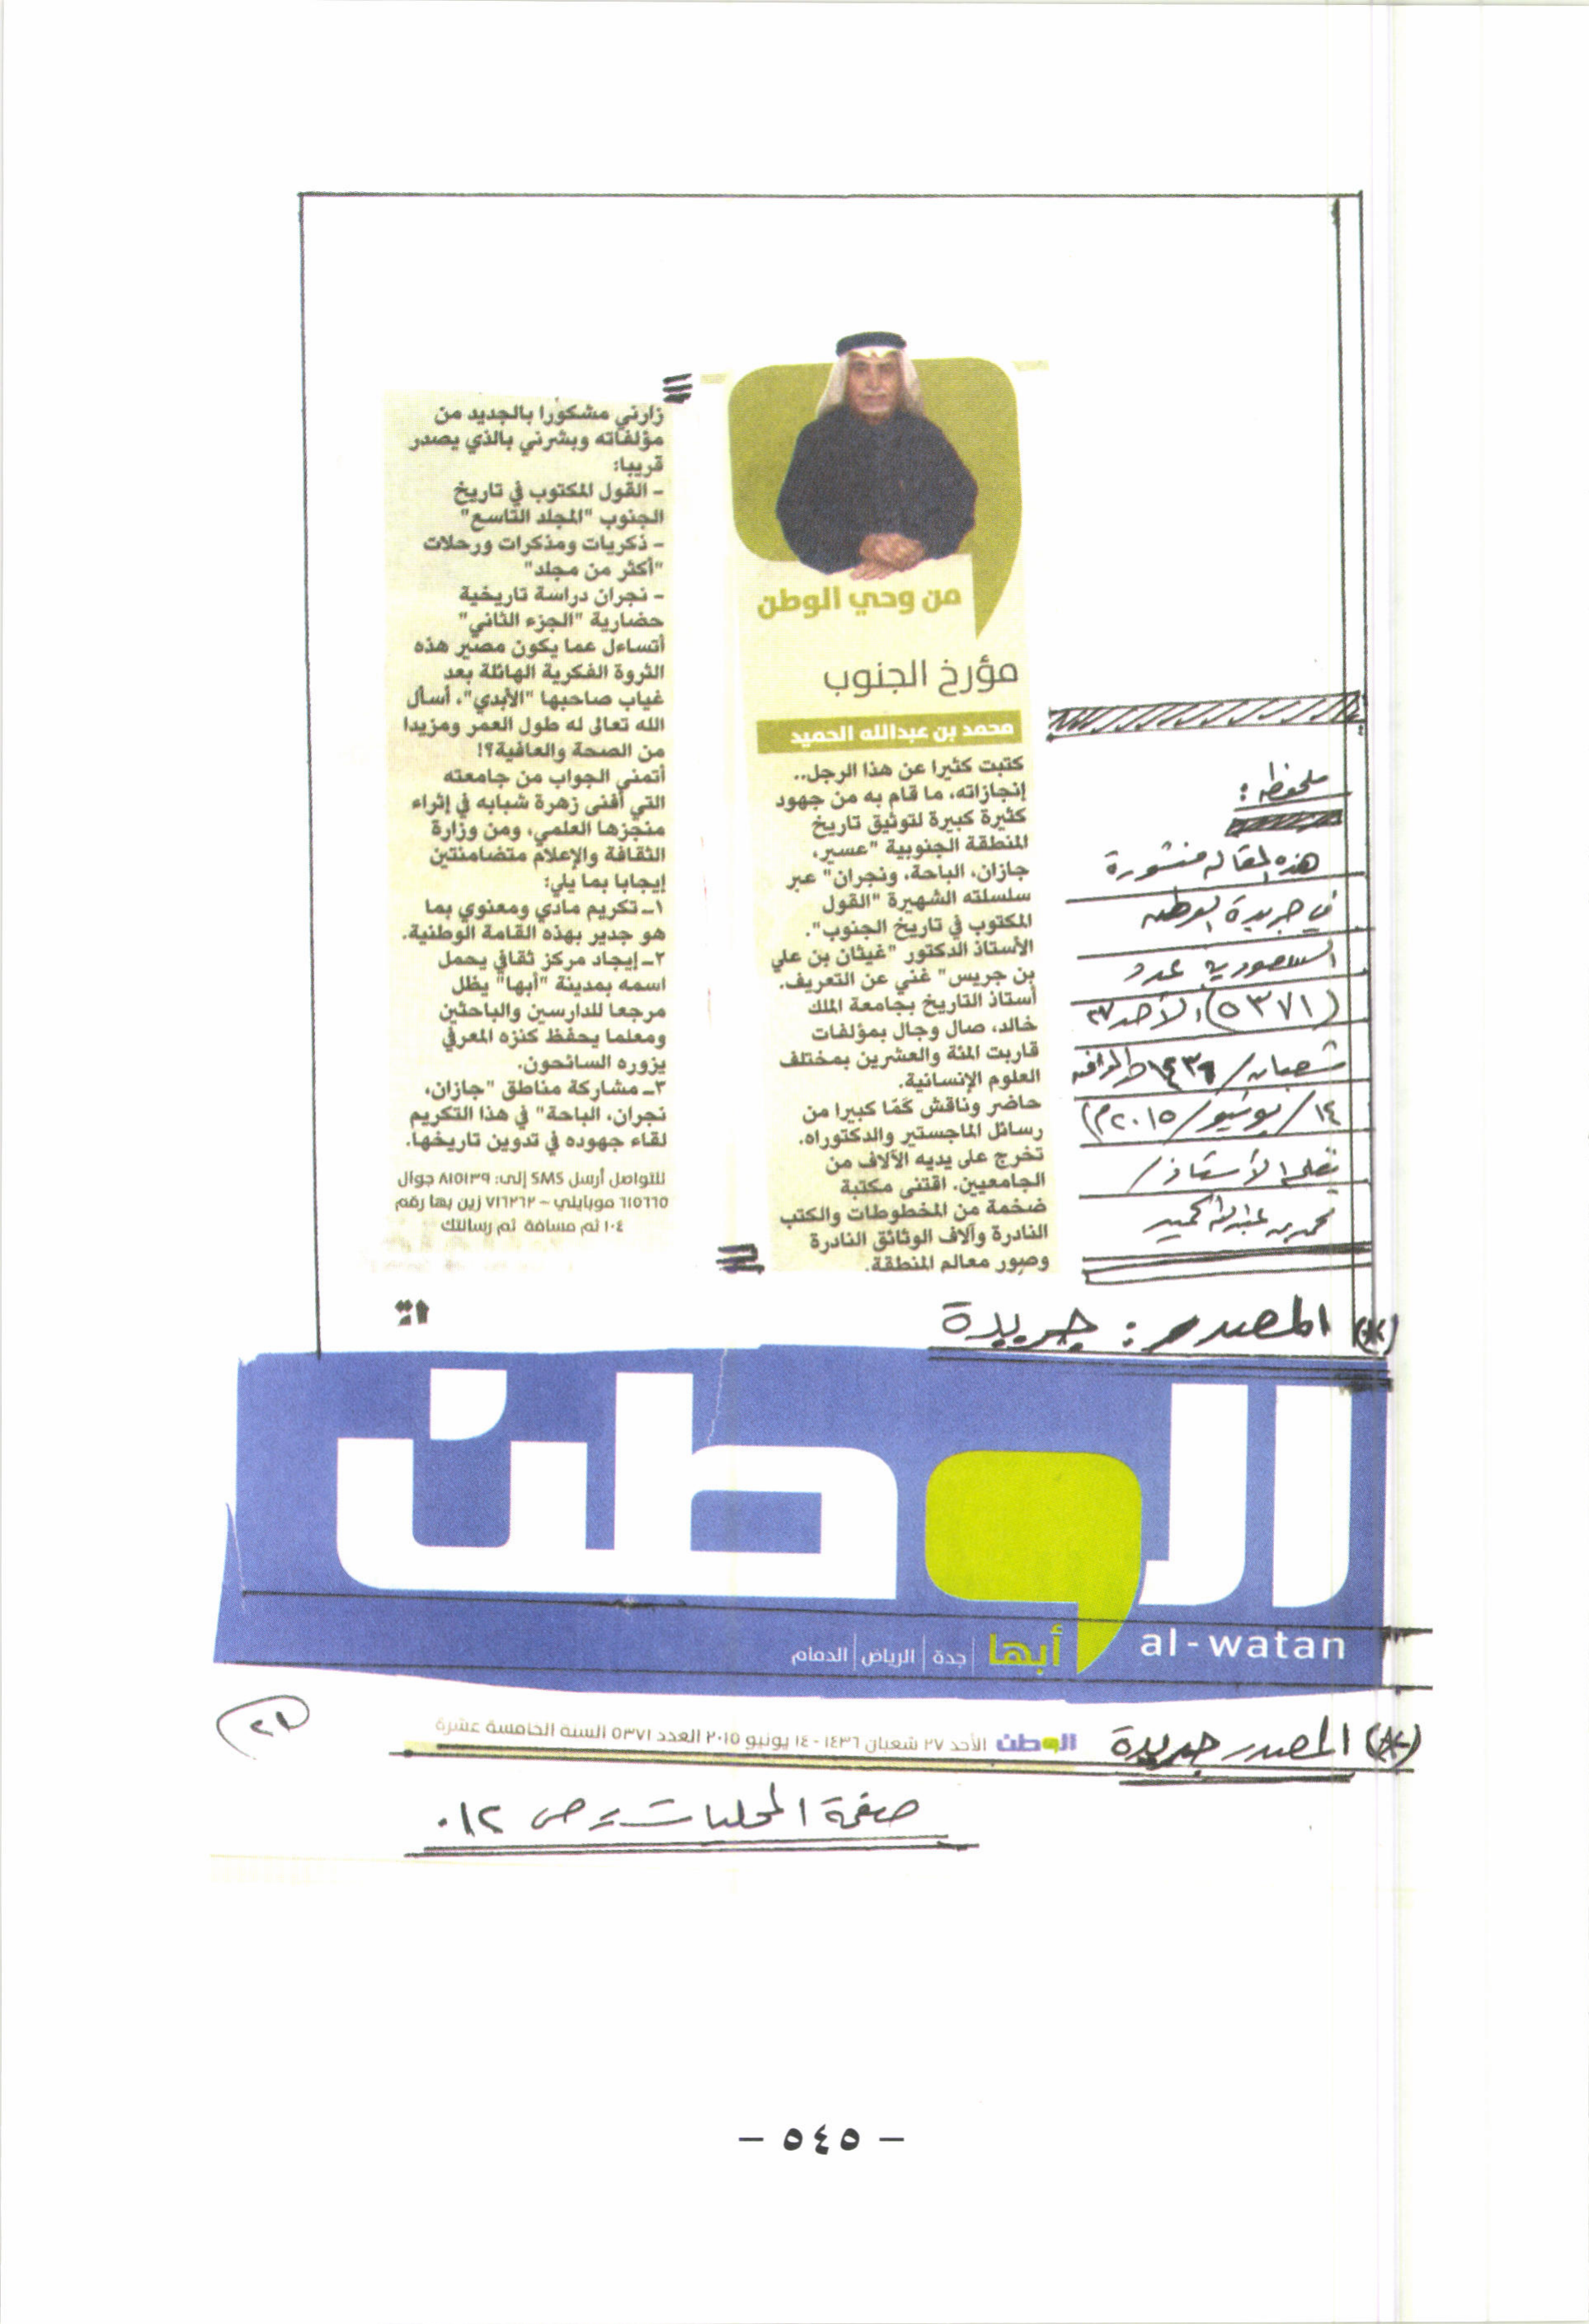 من وحي الوطن
مؤرخ الجنوب
محمد بن عبدالله الحميد
كتبت كثيرا عن هذا الرجل..
إنجازاته، ما قام به من جهود
كثيرة كبيرة لتوثيق تاريخ
المنطقة الجنوبية "عسير،
جازان، الباحة، ونجران" عبر
سلسلته الشهيرة "القول
المكتوب في تاريخ الجنوب".
الأستاذ الدكتور "غيثان بن علي
بن جريس" غني عن التعريف.
أستاذ التاريخ بجامعة الملك
خالد، صال وجال بمؤلفات
قاربت المئة والعشرين بمختلف
العلوم الإنسانية.
حاضر وناقش كمًا كبيرا من
رسائل الماجستير والدكتوراه.
تخرج على يديه الآلاف من
الجامعيين. اقتنى مكتبة
ضخمة من المخطوطات والكتب
النادرة وآلاف الوثائق النادرة
وصور معالم المنطقة.
زارني مشكورا بالجديد من
مؤلفاته وبشرني بالذي يصدر
قريبا:
- القول المكتوب في تاريخ
الجنوب "المجلد التاسع"
- ذكريات ومذكرات ورحلات
"أكثر من مجلد"
- نجران دراسة تاريخية
حضارية "الجزء الثاني"
أتساءل عما يكون مصير هذه
الثروة الفكرية الهائلة بعد
غياب صاحبها "الأبدي"، أسأل
الله تعالى له طول العمر ومزيدا
من الصحة والعافية؟!
أتمنى الجواب من جامعته
التي أفنى زهرة شبابه في إثراء
منجزها العلمي، ومن وزارة
الثقافة والإعلام متضامنتين
إيجابا بما يلي:
١ـ تكريم مادي ومعنوي بما
هو جدير بهذه القامة الوطنية.
٢ـ إيجاد مركز ثقافي يحمل
اسمه بمدينة "أبها" يظل
مرجعا للدارسين والباحثين
ومعلما يحفظ كنزه المعرفي
يزوره السائحون.
٣ـ مشاركة مناطق "جازان،
نجران، الباحة" في هذا التكريم
لقاء جهوده في تدوين تاريخها.
للتواصل أرسل SMS إلى: ٨١٥١٣٩ جوال
٦١٥٦٦٥ موبايلي - ٧١٦٢٦٢ زين بها رقم
١٠٤ ثم مسافة ثم رسالتك
ملحوظة:
هذه المقالة منشورة
في جريدة الوطن
السعودية عدد
(٥٣٧١) الأحد ٢٧
شعبان / ١٤٣٦هـ الموافق
١٤/يونيو/٢٠١٥م)
بقلم الأستاذ/
محمد بن عبدالله الحميد
المصدر: جريدة
الوطن
al-watan
أبها | جدة | الرياض | الدمام
المصدر جريدة الوطن الأحد ٢٧ شعبان ١٤٣٦ - ١٤ يونيو ٢٠١٥ العدد ٥٣٧١ السنة الخامسة عشرة
صفحة المحليات = ص ١٢.
- ٥٤٥ -